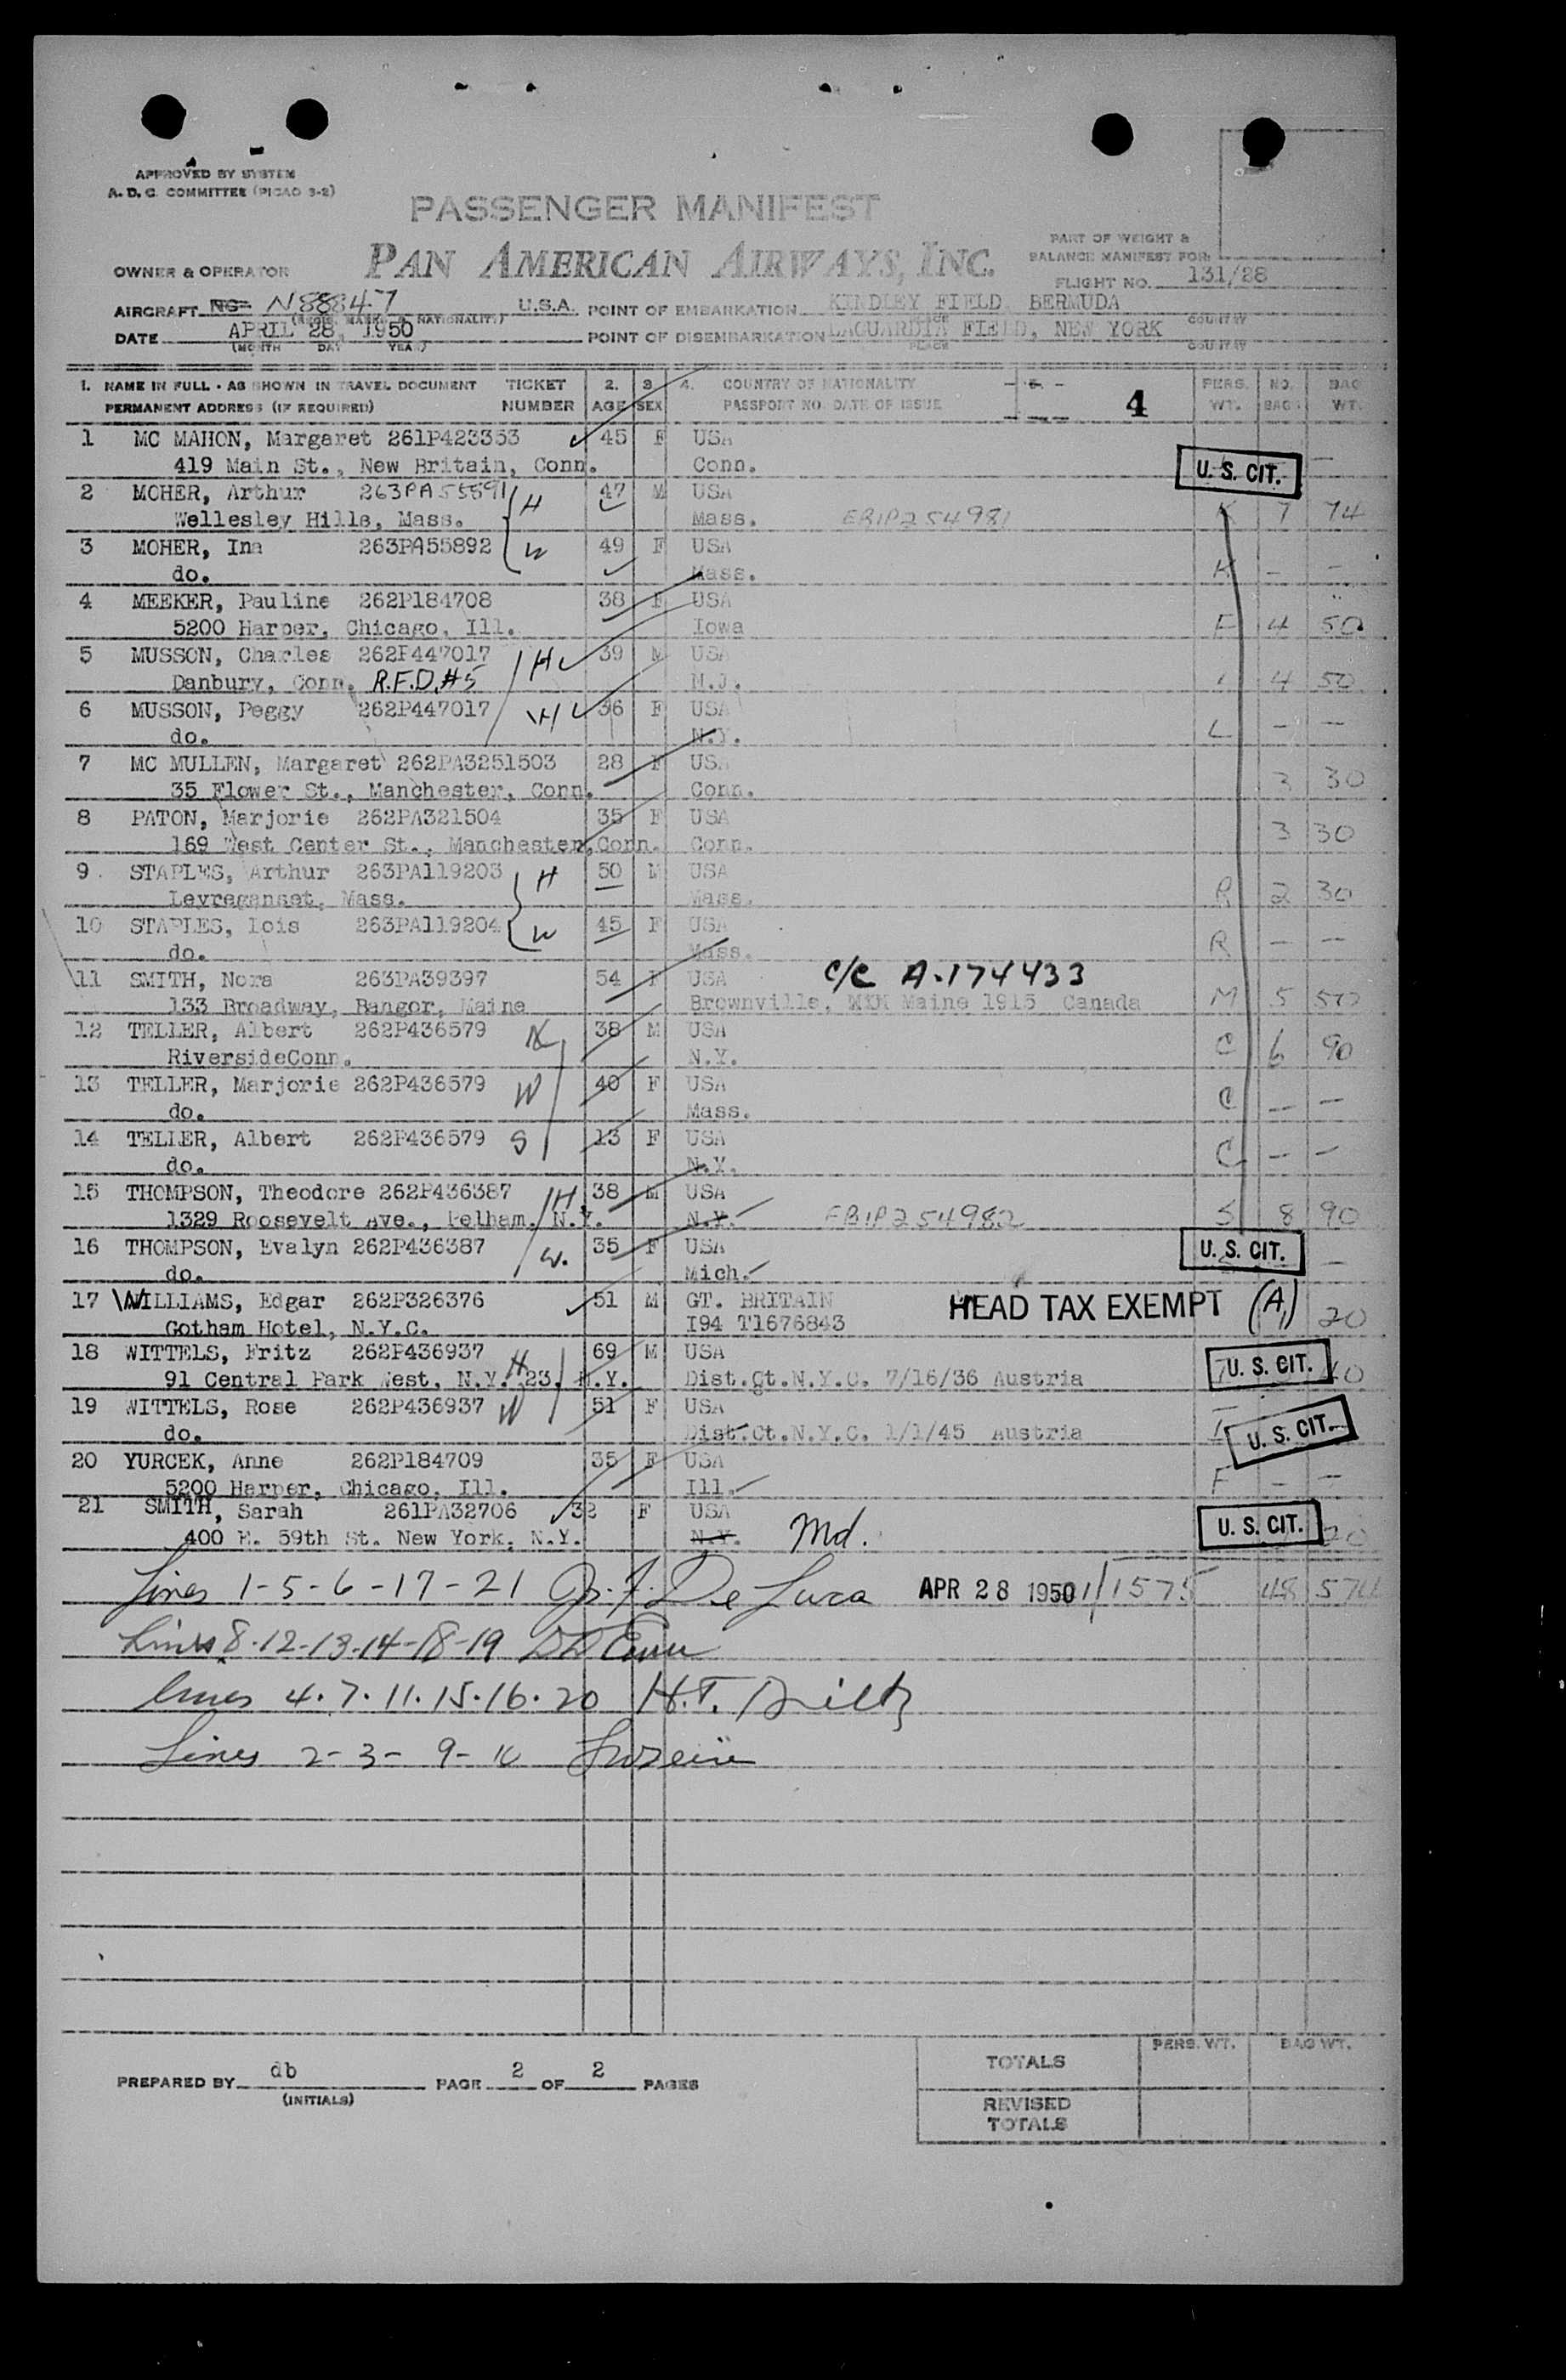 APPROVED BY SYSTEM
A. D. C. COMMITTEE (PICAO 3-2)
PASSENGER MANIFEST
PAN AMERICAN AIRWAYS, INC.
PART OF WEIGHT &
BALANCE MANIFEST FOR:
FLIGHT NO. 131/28
OWNER & OPERATOR
AIRCRAFT NC- N88847 U.S.A. POINT OF EMBARKATION KINDLEY FIELD, BERMUDA
(REGIS. MARKS & NATIONALITY) PLACE COUNTRY
DATE APRIL 28, 1950 POINT OF DISEMBARKATION LAGUARDIA FIELD, NEW YORK
(MONTH DAY YEAR) PLACE COUNTRY
1. NAME IN FULL - AS SHOWN IN TRAVEL DOCUMENT TICKET 2. 3 4. COUNTRY OF NATIONALITY - 5. - PERS. NO. BAG
PERMANENT ADDRESS (IF REQUIRED) NUMBER AGE SEX PASSPORT NO. DATE OF ISSUE 4 WT. BAGS WT.
1 MC MAHON, Margaret 261P423353 45 F USA
419 Main St., New Britain, Conn. Conn. U. S. CIT. —
2 MOHER, Arthur 263PA55891 H 47 M USA
Wellesley Hills, Mass. Mass. EB1P254981 K 7 74
3 MOHER, Ina 263PA55892 W 49 F USA
do. Mass. K — —
4 MEEKER, Pauline 262P184708 38 F USA
5200 Harper, Chicago, Ill. Iowa F 4 50
5 MUSSON, Charles 262P447017 H 39 M USA
Danbury, Conn. R.F.D.#5 N.J. 4 50
6 MUSSON, Peggy 262P447017 W 36 F USA
do. N.Y. L — —
7 MC MULLEN, Margaret 262PA3251503 28 F USA
35 Flower St., Manchester, Conn. Conn. 3 30
8 PATON, Marjorie 262PA321504 35 F USA
169 West Center St., Manchester, Conn. Conn. 3 30
9 STAPLES, Arthur 263PA119203 H 50 M USA
Mass. Mass. R 2 30
10 STAPLES, Lois 263PA119204 W 45 F USA
do. Mass. R — —
11 SMITH, Nora 263PA39397 54 F USA C/C A-174433
133 Broadway, Bangor, Maine Brownville, MXM Maine 1915 Canada M 5 50
12 TELLER, Albert 262P436579 H 38 M USA
RiversideConn. N.Y. C 6 90
13 TELLER, Marjorie 262P436579 W 40 F USA
do. Mass. C — —
14 TELLER, Albert 262P436579 S 13 F USA
do. N.Y. C — —
15 THOMPSON, Theodore 262P436387 H 38 M USA
1329 Roosevelt Ave., Pelham, N.Y. N.Y. EB1P254982 S 8 90
16 THOMPSON, Evalyn 262P436387 W. 35 F USA U. S. CIT.
do. Mich. —
17 WILLIAMS, Edgar 262P326376 51 M GT. BRITAIN HEAD TAX EXEMPT (A)
Gotham Hotel, N.Y.C. I94 T1676843 20
18 WITTELS, Fritz 262P436937 H 69 M USA
91 Central Park West, N.Y. 23, N.Y. Dist.Ct.N.Y.C. 7/16/36 Austria U. S. CIT. 40
19 WITTELS, Rose 262P436937 W 51 F USA
do. Dist.Ct.N.Y.C. 1/1/45 Austria U. S. CIT.
20 YURCEK, Anne 262P184709 35 F USA
5200 Harper, Chicago, Ill. Ill. F — —
21 SMITH, Sarah 261PA32706 32 F USA
400 E. 59th St. New York, N.Y. N.Y. Md. U. S. CIT. 20
Lines 1-5-6-17-21 De Luca APR 28 1950 1575 48 574
Lines 8-12-13-14-18-19
Lines 4.7.11.15.16.20 H.T.
Lines 2-3-9-10
PREPARED BY db PAGE 2 OF 2 PAGES
(INITIALS)
PERS. WT. BAG WT.
TOTALS
REVISED
TOTALS